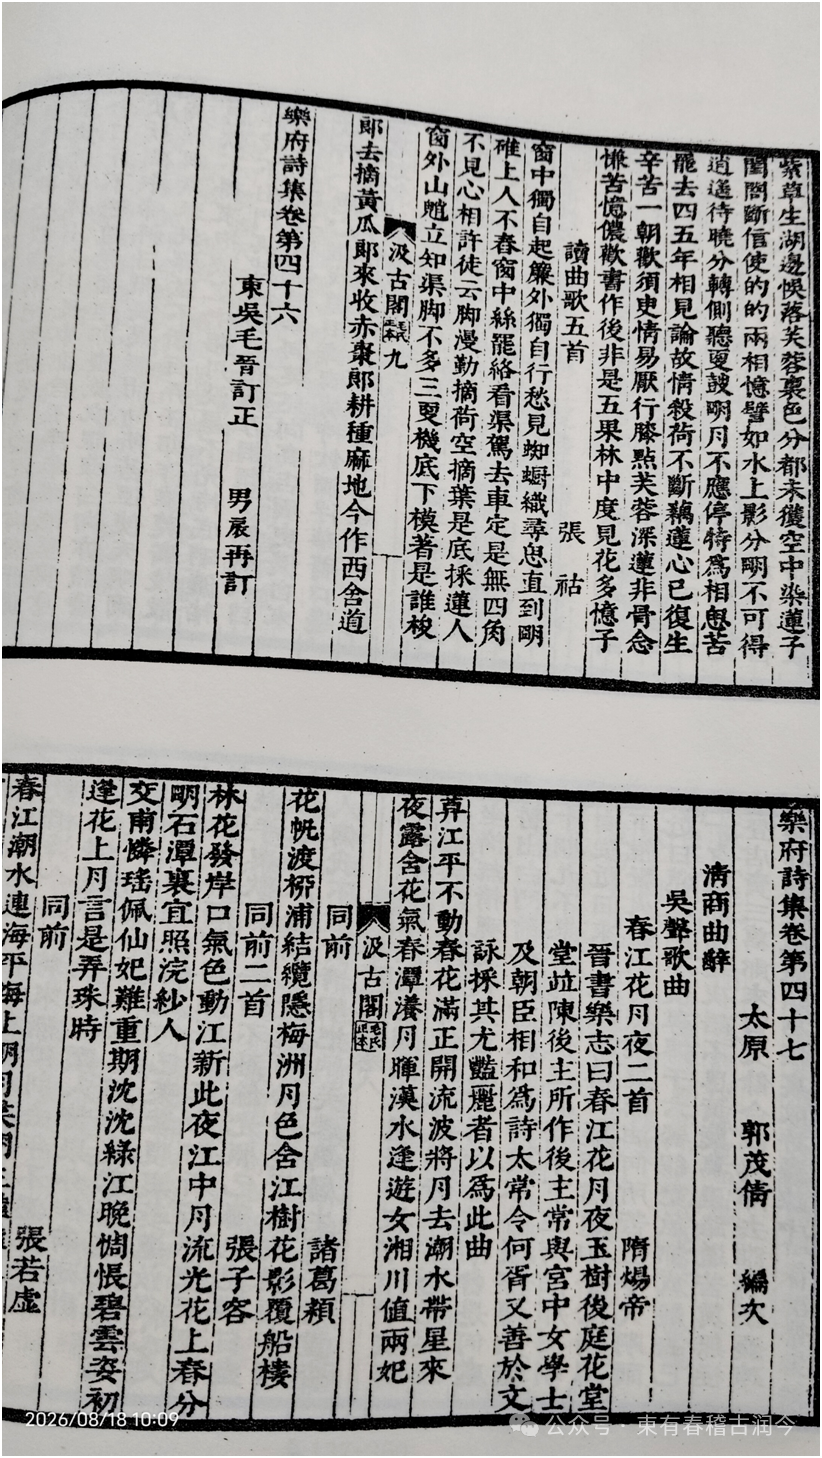 紫草生湖邊悞落芙蓉裏色分都未獲空中染蓮子
閨閤斷信使的的兩相憶譬如水上影分明不可得
逍遙待曉分轉側聽更鼓明月不應停特為相思苦
罷去四五年相見論故情殺荷不斷藕蓮心已復生
辛苦一朝歡須臾情易厭行膝點芙蓉深蓮非骨念
慊苦憶儂歡書作後非是五果林中度見花多憶子
讀曲歌五首 張祜
窗中獨自起簾外獨自行愁見蜘蟵織尋思直到明
碓上人不舂窗中絲罷絡看渠駕去車定是無四角
不見心相許徒云脚漫勤摘荷空摘葉是底採蓮人
窗外山魈立知渠脚不多三更機底下模著是誰梭
汲古閣 毛氏正本 九
郎去摘黃瓜郎來收赤棗郎耕種麻地今作西舍道
樂府詩集卷第四十六
東吳毛晉訂正 男扆再訂
樂府詩集卷第四十七
太原 郭茂倩 編次
清商曲辭
吳聲歌曲
春江花月夜二首 隋煬帝
晉書樂志曰春江花月夜玉樹後庭花堂
堂竝陳後主所作後主常與宮中女學士
及朝臣相和為詩太常令何胥又善於文
詠採其尤豔麗者以為此曲
莫江平不動春花滿正開流波將月去潮水帶星來
夜露含花氣春潭瀁月暉漢水逢遊女湘川值兩妃
汲古閣 毛氏正本
同前 諸葛穎
花帆渡栁浦結纜隱梅洲月色含江樹花影覆船樓
同前二首 張子容
林花發岸口氣色動江新此夜江中月流光花上春分
明石潭裏宜照浣紗人
交甫憐瑤佩仙妃難重期沈沈綠江晚惆悵碧雲姿初
逢花上月言是弄珠時
同前 張若虛
春江潮水連海平海上明月共潮生
2026/08/18 10:09
公众号·東有春稽古润今